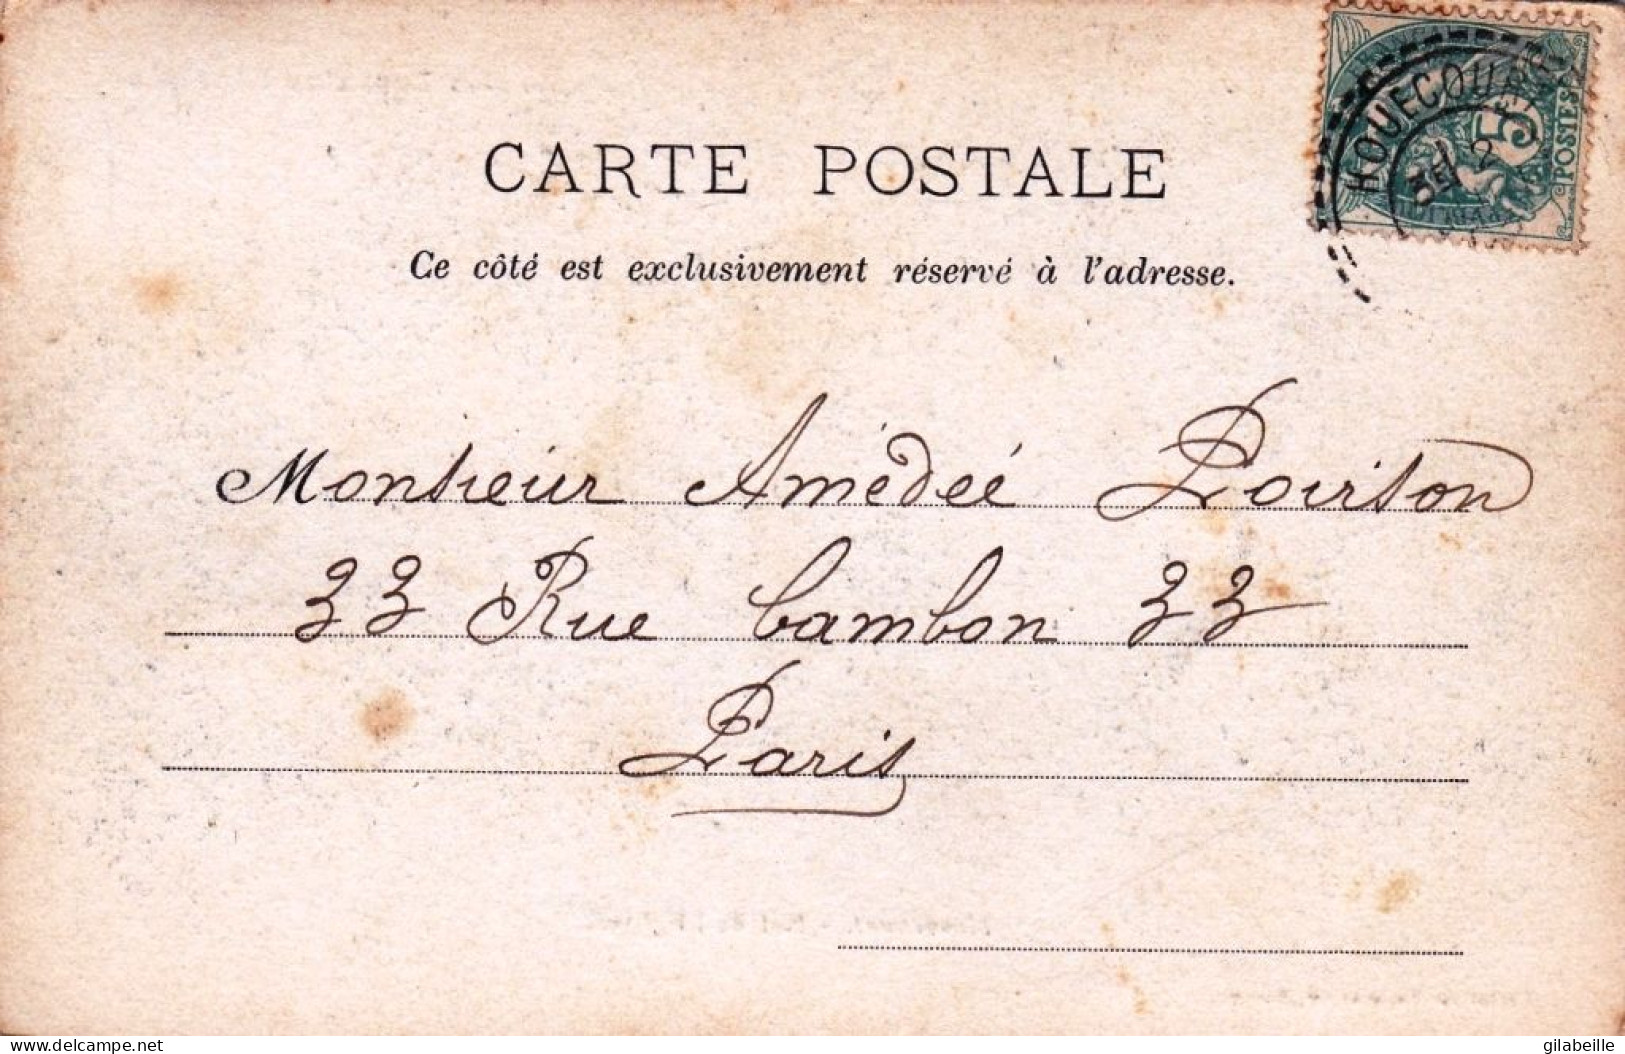 CARTE POSTALE
Ce côté est exclusivement réservé à l'adresse.
HOUECOURT
5
POSTES
Monsieur Amédée Poirson
33 Rue Cambon 33
Paris
delcampe.net
gilabeille